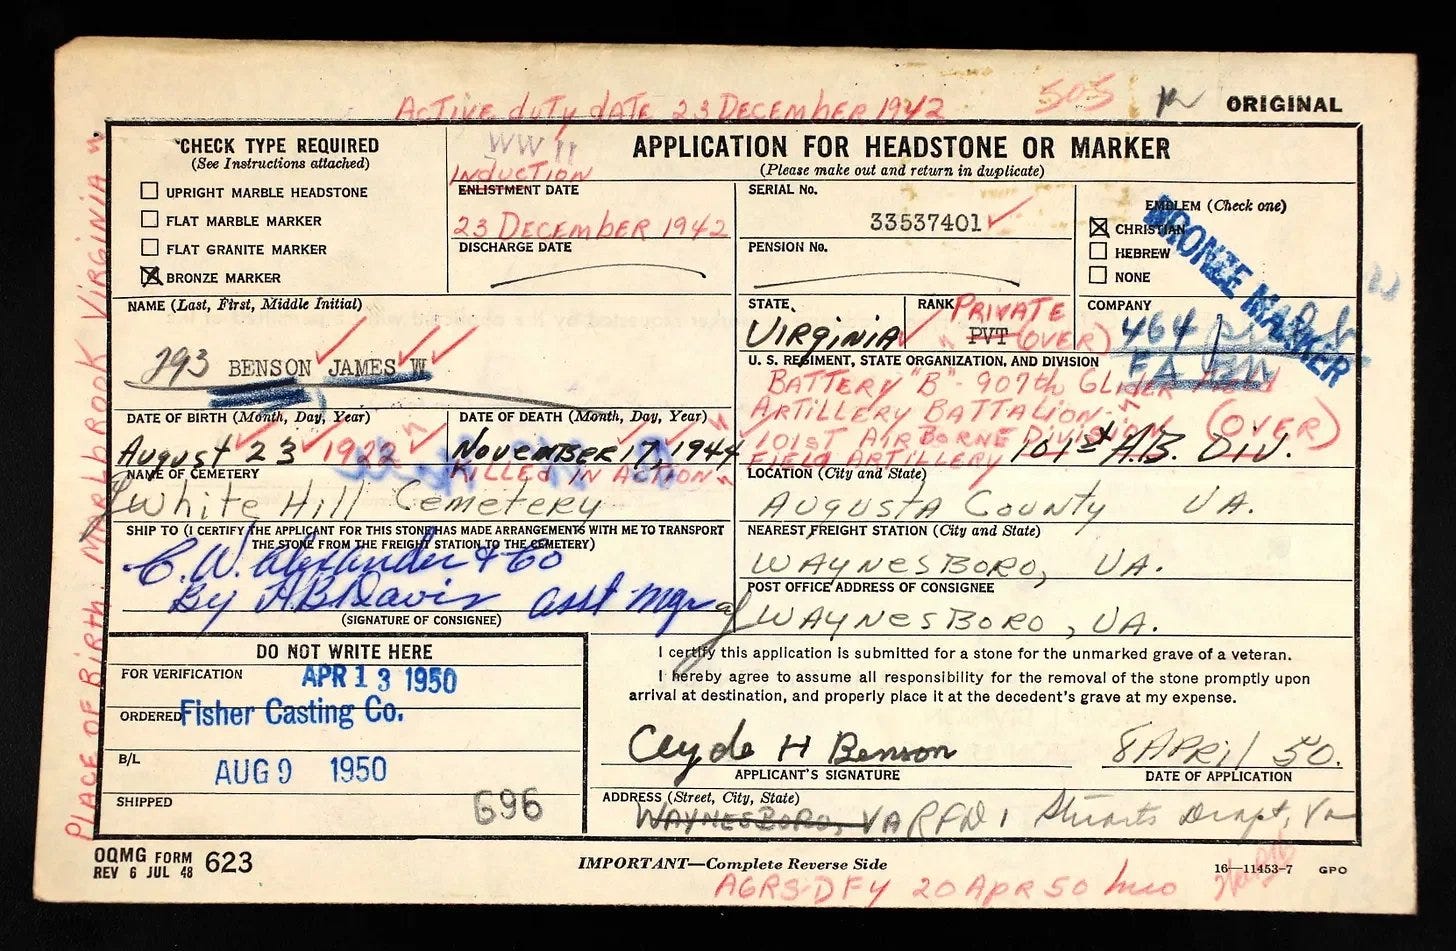 ACTIVE duty dATE 23 DECEMBER 1942
505
ORIGINAL
PLACE OF BIRTH MARLBROOK VIRGINIA
CHECK TYPE REQUIRED
(See Instructions attached)
UPRIGHT MARBLE HEADSTONE
FLAT MARBLE MARKER
FLAT GRANITE MARKER
BRONZE MARKER
WW II
INDUCTION
ENLISTMENT DATE
23 DECEMBER 1942
DISCHARGE DATE
APPLICATION FOR HEADSTONE OR MARKER
(Please make out and return in duplicate)
SERIAL No.
33537401
PENSION No.
EMBLEM (Check one)
CHRISTIAN
HEBREW
NONE
BRONZE MARKER
NAME (Last, First, Middle Initial)
293 BENSON JAMES W
STATE
VIRGINIA
RANK PRIVATE
PVT (OVER)
COMPANY
464
FA BN
U. S. REGIMENT, STATE ORGANIZATION, AND DIVISION
BATTERY "B" - 907th GLIDER
ARTILLERY BATTALION -
101ST AIRBORNE DIVISION (OVER)
FIELD ARTILLERY 101st A.B. DIV.
DATE OF BIRTH (Month, Day, Year)
August 23 1922
DATE OF DEATH (Month, Day, Year)
NOVEMBER 17, 1944
KILLED IN ACTION
NAME OF CEMETERY
White Hill Cemetery
LOCATION (City and State)
AUGUSTA COUNTY VA.
SHIP TO (I CERTIFY THE APPLICANT FOR THIS STONE HAS MADE ARRANGEMENTS WITH ME TO TRANSPORT
THE STONE FROM THE FREIGHT STATION TO THE CEMETERY)
C. W. Alexander & Co
By H.B. Davis asst Mgr
(SIGNATURE OF CONSIGNEE)
NEAREST FREIGHT STATION (City and State)
WAYNESBORO, VA.
POST OFFICE ADDRESS OF CONSIGNEE
WAYNESBORO, VA.
DO NOT WRITE HERE
FOR VERIFICATION APR 13 1950
ORDERED Fisher Casting Co.
B/L AUG 9 1950
SHIPPED 696
I certify this application is submitted for a stone for the unmarked grave of a veteran.
I hereby agree to assume all responsibility for the removal of the stone promptly upon
arrival at destination, and properly place it at the decedent's grave at my expense.
Clyde H Benson
APPLICANT'S SIGNATURE
8 APRIL 50.
DATE OF APPLICATION
ADDRESS (Street, City, State)
WAYNESBORO, VA RFD 1 Stuarts Draft, Va
OQMG FORM 623
REV 6 JUL 48
IMPORTANT—Complete Reverse Side
16—11453-7 GPO
AGRS-DFY 20 Apr 50